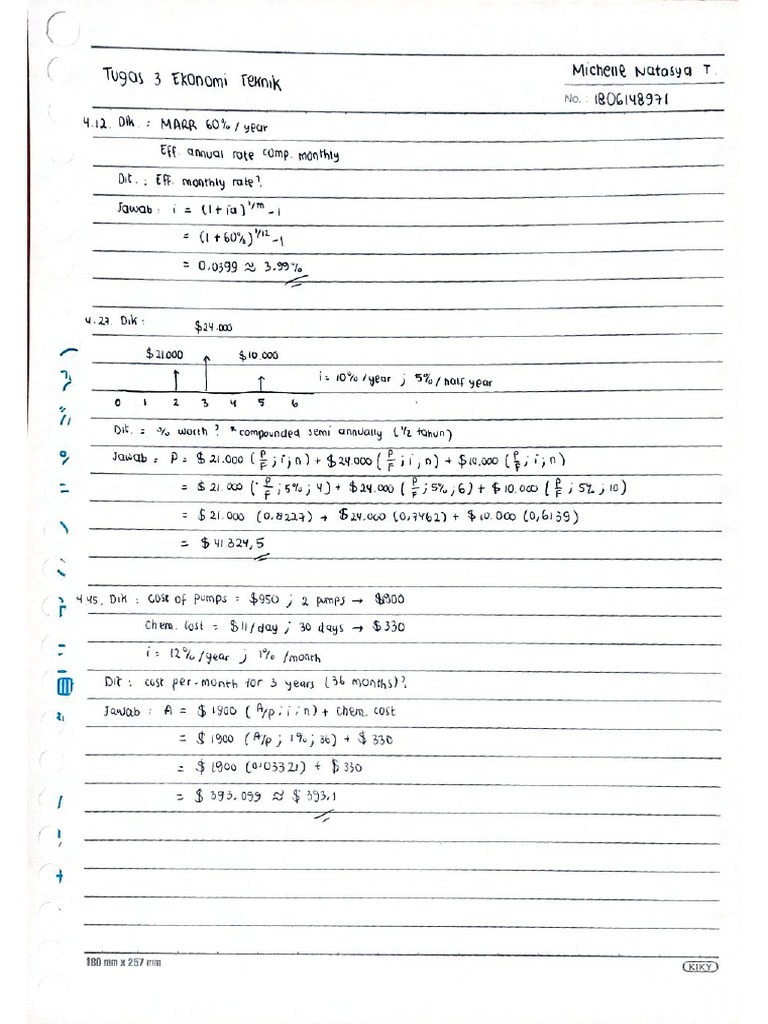 Tugas 3 Ekonomi Teknik
Michelle Natasya T.
No. : 1806148971
4.12. Dik. : MARR 60% / year
Eff. annual rate comp. monthly
Dit. : Eff. monthly rate?
Jawab : i = (1 + ia)^1/m - 1
= (1 + 60%)^1/12 - 1
= 0,0399 ≈ 3.99%
4.27. Dik :
$24.000
$21000 $10.000
i = 10% / year ; 5% / half year
0 1 2 3 4 5 6
Dit. = % worth ? * compounded semi annually (1/2 tahun)
Jawab = P = $ 21.000 (P/F ; i ; n) + $24.000 (P/F ; i ; n) + $10.000 (P/F ; i ; n)
= $ 21.000 (P/F ; 5% ; 4) + $24.000 (P/F ; 5% ; 6) + $ 10.000 (P/F ; 5% ; 10)
= $ 21.000 (0,8227) + $24.000 (0,7462) + $ 10.000 (0,6139)
= $ 41.324,5
4.45. Dik : cost of pumps = $950 ; 2 pumps → $1900
Chem. cost = $11/day ; 30 days → $330
i = 12% / year ; 1% / month
Dit : cost per-month for 3 years (36 months)?
Jawab : A = $ 1900 (A/P ; i ; n) + chem. cost
= $ 1900 (A/P ; 1% ; 36) + $ 330
= $ 1900 (0,03321) + $ 330
= $ 393.099 ≈ $ 393,1
180 mm x 257 mm
KIKY